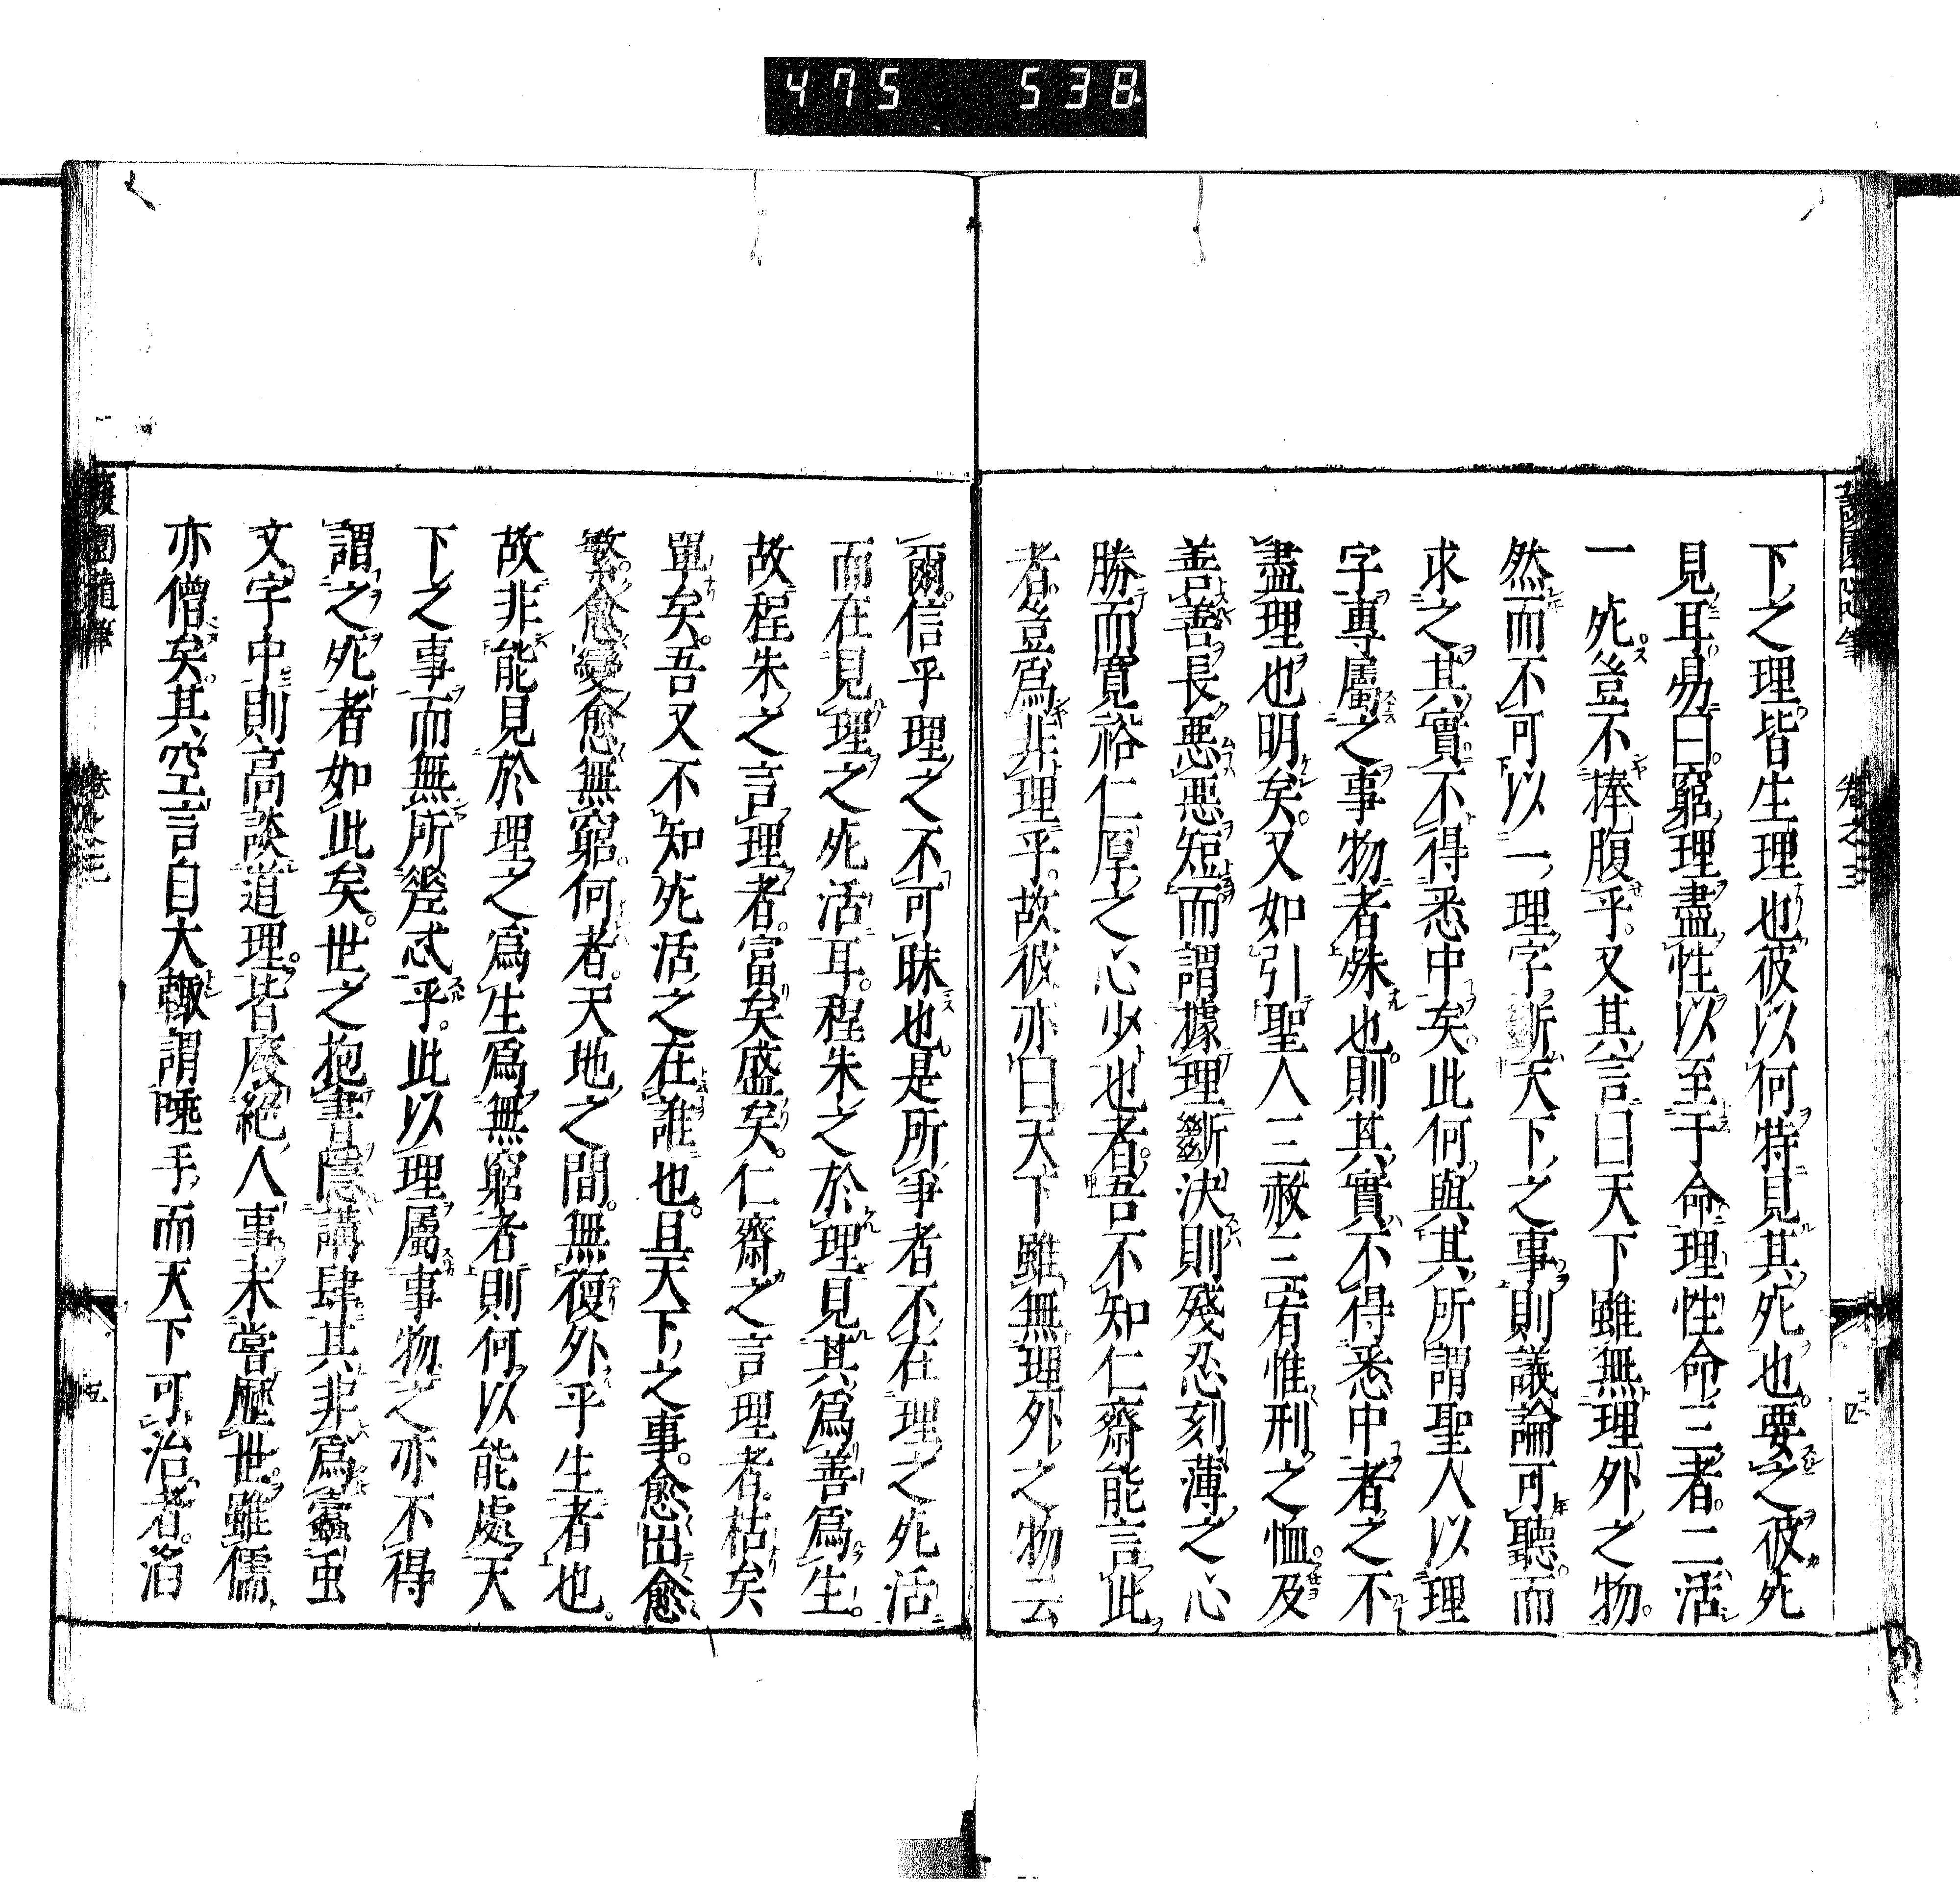 475 538
蘐園隨筆 卷之三 四
下之理皆生理也彼以何特見其死也。要之彼死
見耳。易曰。窮理盡性以至于命理性命三者。二活
一死。豈不捧腹乎。又其言曰天下雖無理外之物。
然而不可以一理字斷天下之事則議論可聽。而
求之其實不得悉中矣。此何與其所謂聖人以理
字專屬之事物者殊也。則其實不得悉中者之不
盡理也明矣。又如引聖人三赦三宥惟刑之恤。及
善善長惡惡短而謂據理斷決則殘忍刻薄之心
勝而寬裕仁厚之心少也者。吾不知仁齋能言此
者。豈爲非理乎。故彼亦曰天下雖無理外之物云
爾。信乎理之不可昧也。是所爭者不在理之死活
而在見理之死活耳。程朱之於理見其爲善爲生。
故程朱之言理者。富矣盛矣。仁齋之言理者。枯矣
單矣。吾又不知死活之在誰也。且天下之事。愈出愈
繁。愈變愈無窮。何者。天地之間。無復外乎生者也。
故非能見於理之爲生爲無窮者則何以能處天
下之事而無所差忒乎。此以理屬事物之亦不得
謂之死者如此矣。世之抱書隱講肆其非爲蠧虫
文字中則高談道理。皆廢絕人事未嘗歷世。雖儒
亦僧矣。其空言自大輙謂唾手而天下可治者。滔
蘐園隨筆 卷之三 五